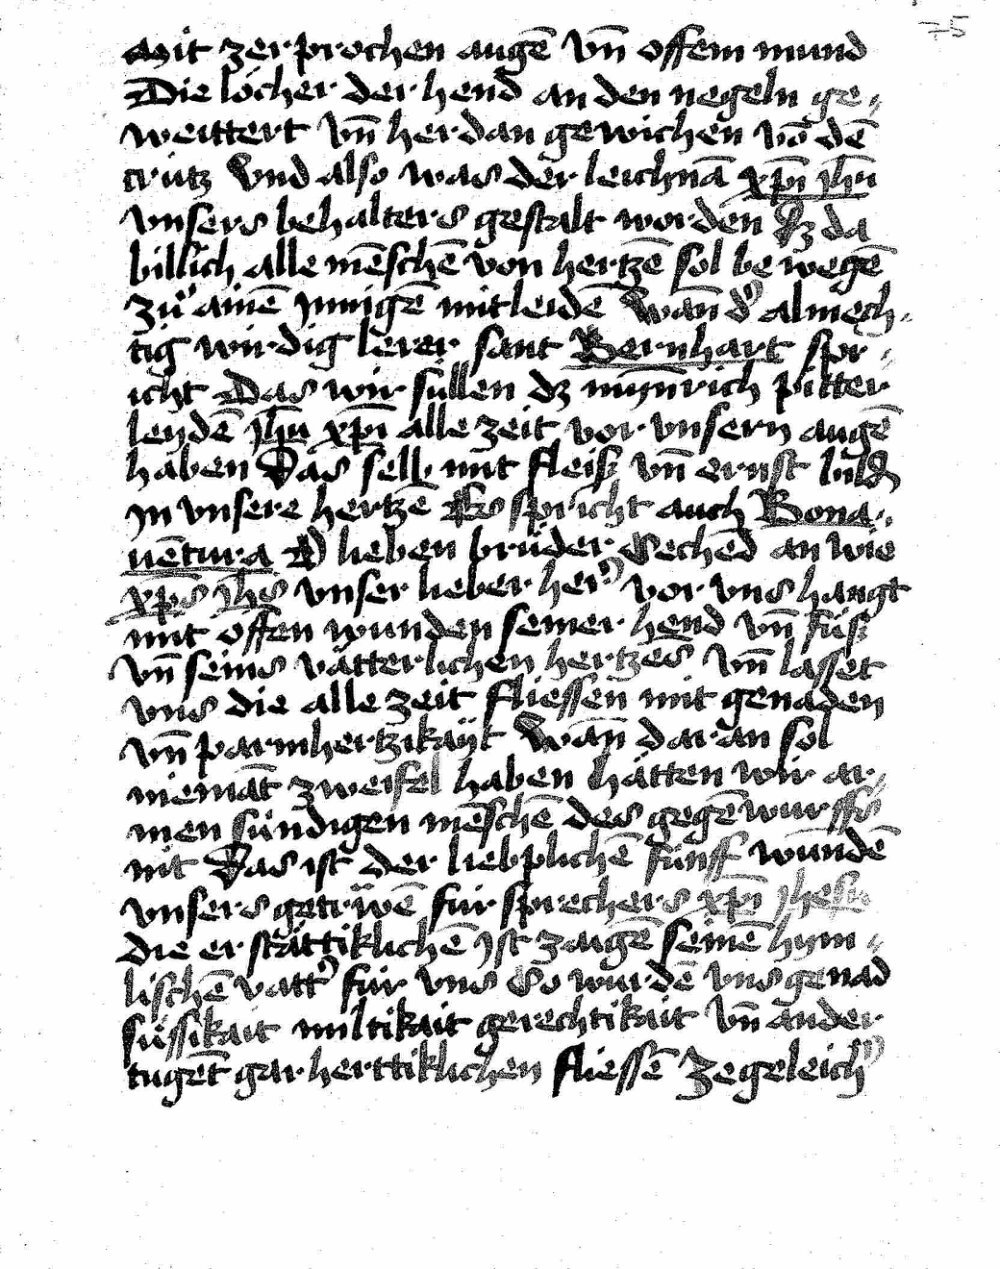 75
Mit zerprochen augē vn̄ offem mund
Die löcher der hend an den negeln ge-
weittert vn̄ herdan gewichen vō dē
crütz Vnd also was der leichnā xp̄i ih̄u
vnsers behalters gestalt worden Dz da
billich alle mēschē von hertzē sol bewegē
zů ainē innigē mitleidē Wan̄ d᾽ almech-
tig wirdig lerer sant Bernhart spr-
icht Das wir süllen dz mynnrich pitter
leydē ih̄u xp̄i alle zeit vor vnsern augē
haben Das selb mit fleiß vn̄ ernst bildē
in vnsere hertzē Es spricht auch Bona-
uētura O lieben brüder Sechēd an wie
xp̄s ih̄s vnser lieber her᾽ vor vns hangt
mit offen wunden seiner hend vn̄ füß
vn̄ seins vätterlichen hertzes vn̄ lasset
vns die alle zeit fliessen mit genaden
vn̄ parmhertzikäyt Wan̄ daran sol
niemāt zweifel haben hätten wir ar-
men sündigen mēschē des gegēwurffs
nit Das ist der lieblichē fünff wundē
vnsers getrüwē für sprechers xp̄i ihesu
die er stättiklichē ist zaigē seinē hym-
lischē vatt᾽ für vns So wurdē vns genad
süssikait miltikait gerechtikait vn̄ ander
tugēt gar herttiklichen fliessē Zegeleich᾽